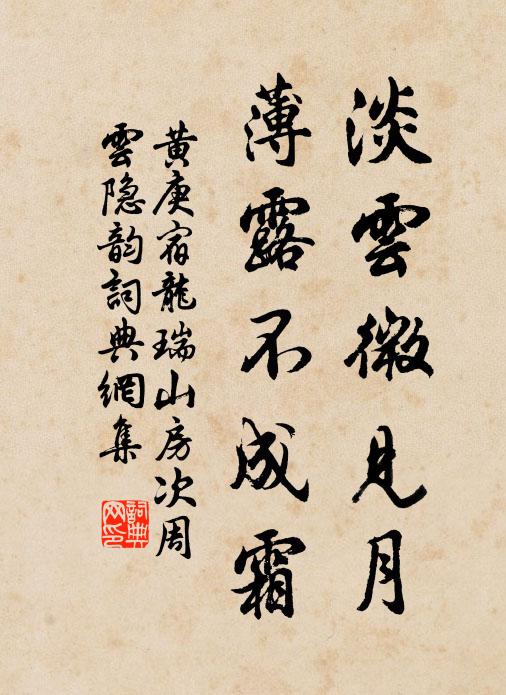 淡雲微見月
薄露不成霜
黄庚宿龍瑞山房次周
雲隐韵詞典網集
詞典网印